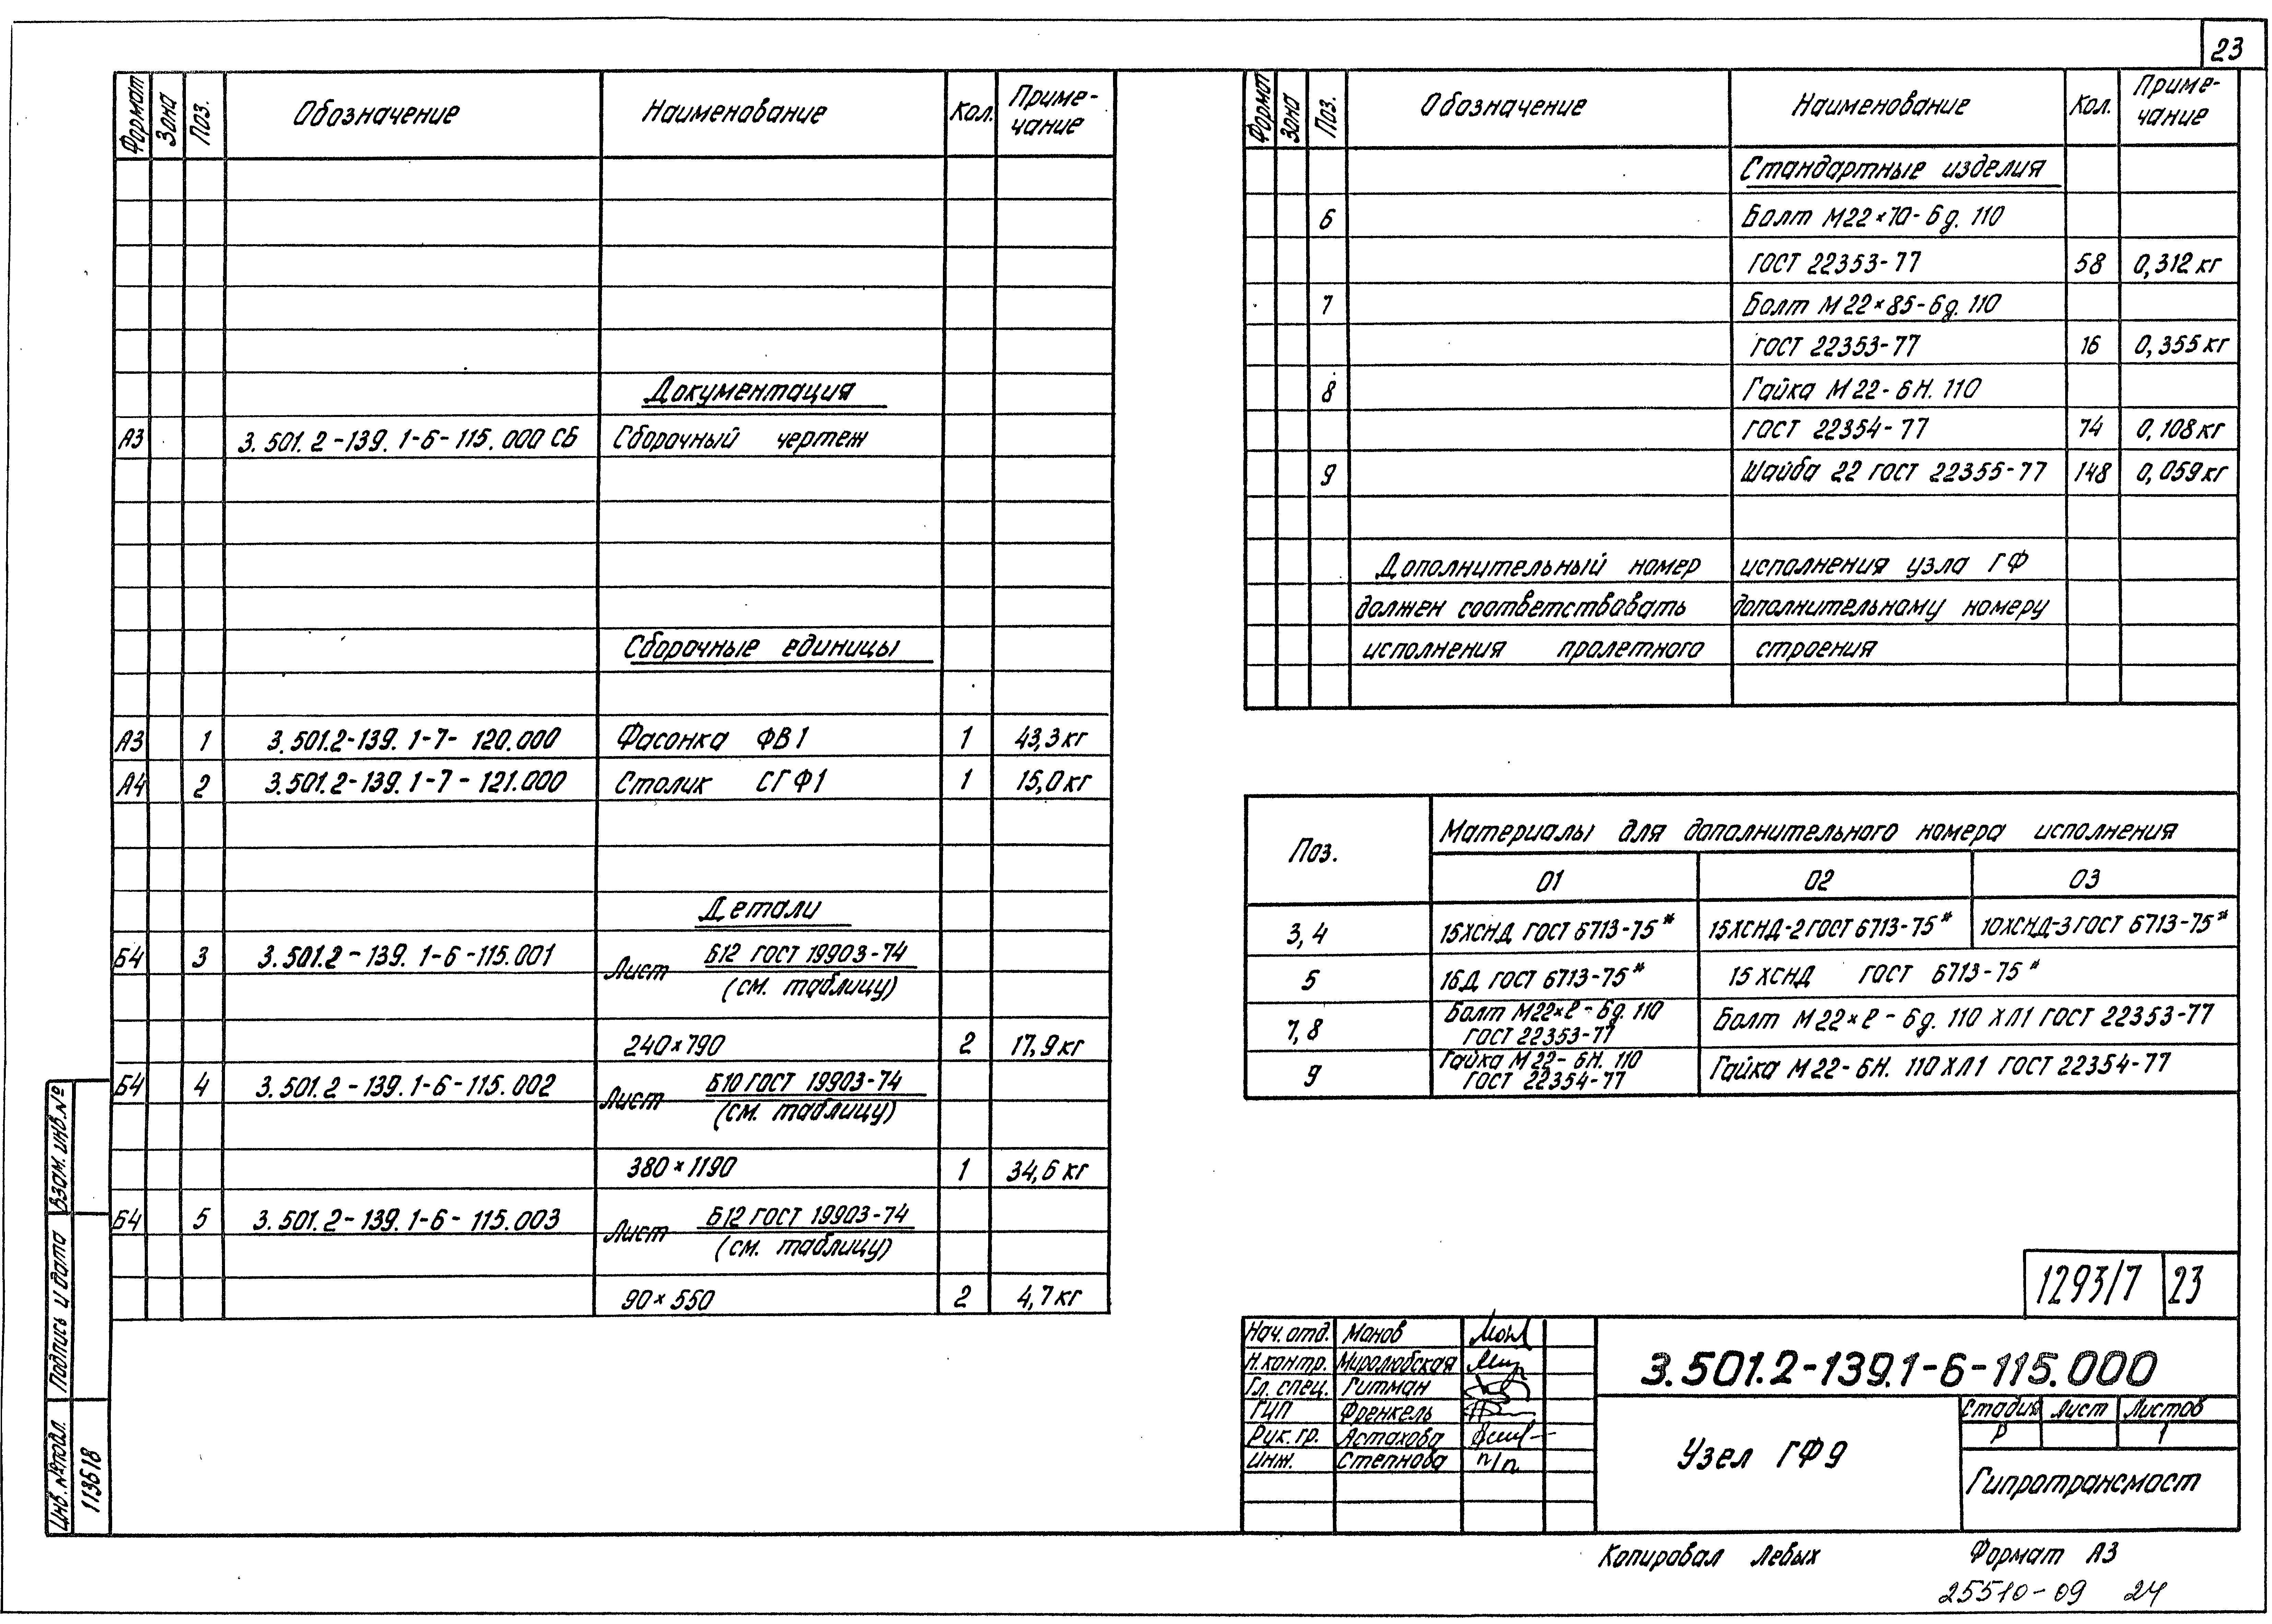 23
Формат Зона Поз. Обозначение Наименование Кол. Приме-
чание
Документация
А3 3.501.2-139.1-6-115.000 СБ Сборочный чертеж
Сборочные единицы
А3 1 3.501.2-139.1-7-120.000 Фасонка ФВ1 1 43,3кг
А4 2 3.501.2-139.1-7-121.000 Столик СГФ1 1 15,0кг
Детали
Б4 3 3.501.2-139.1-6-115.001 Лист Б12 ГОСТ 19903-74
(см. таблицу)
240×790 2 17,9кг
Б4 4 3.501.2-139.1-6-115.002 Лист Б10 ГОСТ 19903-74
(см. таблицу)
380×1190 1 34,6 кг
Б4 5 3.501.2-139.1-6-115.003 Лист Б12 ГОСТ 19903-74
(см. таблицу)
90×550 2 4,7кг
Формат Зона Поз. Обозначение Наименование Кол. Приме-
чание
Стандартные изделия
6 Болт М22×70-6g. 110
ГОСТ 22353-77 58 0,312кг
7 Болт М22×85-6g. 110
ГОСТ 22353-77 16 0,355кг
8 Гайка М22-6Н. 110
ГОСТ 22354-77 74 0,108кг
9 Шайба 22 ГОСТ 22355-77 148 0,059кг
Дополнительный номер исполнения узла ГФ
должен соответствовать дополнительному номеру
исполнения пролетного строения
Поз. Материалы для дополнительного номера исполнения
01 02 03
3,4 15ХСНД ГОСТ 6713-75* 15ХСНД-2 ГОСТ 6713-75* 10ХСНД-3 ГОСТ 6713-75*
5 16Д ГОСТ 6713-75* 15 ХСНД ГОСТ 6713-75*
7,8 Болт М22×ℓ-6g. 110
ГОСТ 22353-77 Болт М22×ℓ-6g. 110 ХЛ1 ГОСТ 22353-77
9 Гайка М22-6Н. 110
ГОСТ 22354-77 Гайка М22-6Н. 110ХЛ1 ГОСТ 22354-77
1293/7 23
Нач. отд. Монов
Н. контр. Миролюбская
Гл. спец. Гитман
ГИП Френкель
Рук. гр. Астахова
Инж. Степнова п/п
3.501.2-139.1-6-115.000
Узел ГФ9
Стадия Лист Листов
Р 1
Гипротрансмост
Копировал Левых Формат А3
25510-09 24
Инв. № подл. Подпись и дата Взам. инв. №
113518